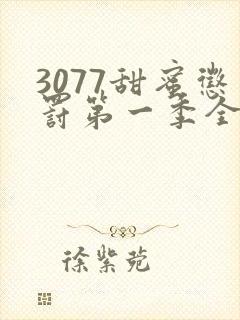 3077甜蜜懲
罰第一季全
徐紫苑